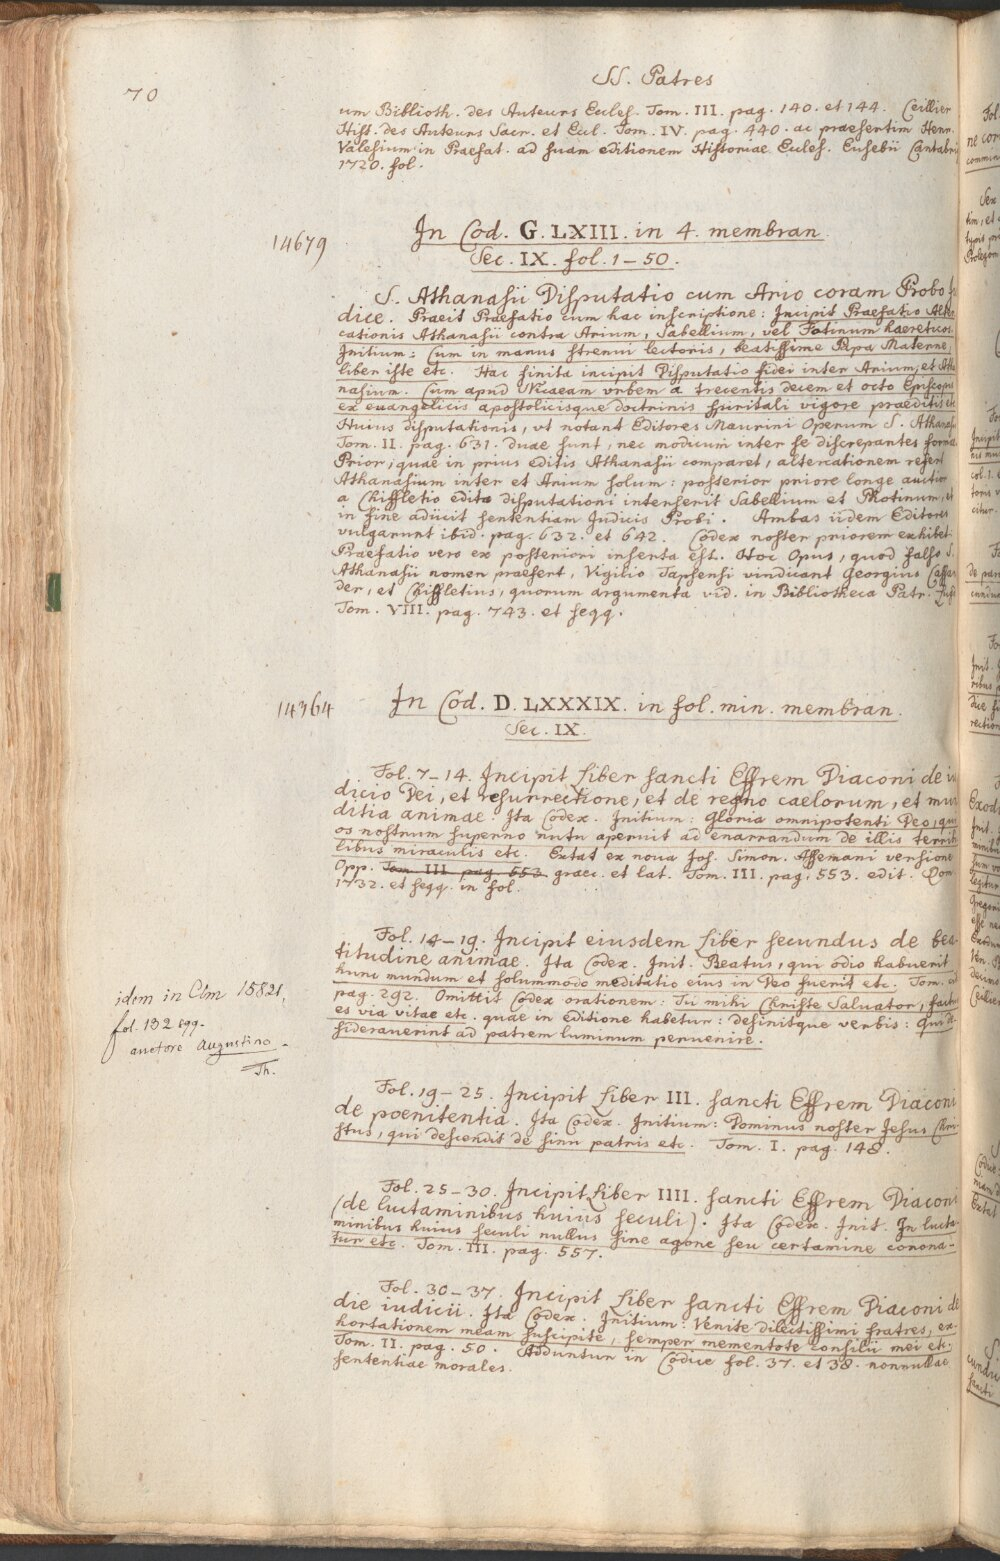 70
SS. Patres
um Biblioth. des Auteurs Eccles. Tom. III. pag. 140. et 144. Ceillier
Hist. des Auteurs Sacr. et Eccl. Tom. IV. pag. 440. ac praesertim Henr.
Valesium in Praefat. ad suam editionem Historiae Eccles. Eusebii Cantabri
1720. fol.
14679
In Cod. G. LXIII. in 4. membran.
Sec. IX. fol. 1–50.
S. Athanasii Disputatio cum Ario coram Probo
dice. Praeit Praefatio cum hac inscriptione: Incipit Praefatio Alter
cationis Athanasii contra Arium, Sabellium, vel Fotinum haereticos.
Initium: Cum in manus strenui lectoris, beatissime Papa Materne,
liber iste etc. Hac finita incipit Disputatio fidei inter Arium, et Atha
nasium. Cum apud Nicaeam vrbem a trecentis decem et octo Episcopis
ex euangelicis apostolicisque doctrinis spiritali vigore praeditis etc
Huius disputationis, vt notant Editores Maurini Operum S. Athanasii
Tom. II. pag. 631. duae sunt, nec modicum inter se discrepantes formae
Prior, quae in prius editis Athanasii comparet, altercationem refert
Athanasium inter et Arium solum: posterior priore longe auctior
a Chiffletio edita disputationi interserit Sabellium et Photinum, et
in fine adiicit sententiam Judicis Probi. Ambas iidem Editores
vulgarunt ibid. pag. 632. et 642. Codex noster priorem exhibet.
Praefatio vero ex posteriori inserta est. Hoc Opus, quod falso S.
Athanasii nomen praefert, Vigilio Tapsensi vindicant Georgius Cassan
der, et Chiffletius, quorum argumenta vid. in Bibliotheca Patr. Lugd
Tom. VIII. pag. 743. et seqq.
14364
In Cod. D. LXXXIX. in fol. min. membran.
Sec. IX.
Fol. 7–14. Incipit Liber sancti Effrem Diaconi de iu
dicio Dei, et resurrectione, et de regno caelorum, et mun
ditia animae. Ita Codex. Initium: Gloria omnipotenti Deo, qui
os nostrum superno nutu aperuit ad enarrandum de illis terrib
libus miraculis etc. Extat ex noua Jos. Simon. Assemani versione
Opp. Tom. III. pag. 553. graec. et lat. Tom. III. pag. 553. edit. Rom.
1732. et seqq. in fol.
Fol. 14–19. Incipit eiusdem Liber secundus de bea-
titudine animae. Ita Codex. Init. Beatus, qui odio habuerit
hunc mundum et solummodo meditatio eius in Deo fuerit etc. Tom.
pag. 292. Omittit Codex orationem: Tu mihi Christe Saluator, factus
es via vitae etc. quae in editione habetur: definitque verbis: Qui de-
siderauerint ad patrem luminum peruenire.
idem in Clm 15821,
fol. 132 sqq.
auctore Augustino.
Th.
Fol. 19–25. Incipit Liber III. sancti Effrem Diaconi
de poenitentia. Ita Codex. Initium: Dominus noster Jesus Chri-
stus, qui descendit de sinu patris etc. Tom. I. pag. 148.
Fol. 25–30. Incipit Liber IIII. sancti Effrem Diaconi
(de luctaminibus huius seculi). Ita Codex. Init. In lucta-
minibus huius seculi nullus sine agone seu certamine corona-
tur etc. Tom. III. pag. 557.
Fol. 30–37. Incipit Liber sancti Effrem Diaconi de
die iudicii. Ita Codex. Initium: Venite dilectissimi fratres, ex-
hortationem meam suscipite, semper mementote consilii mei etc.
Tom. II. pag. 50. Adduntur in Codice fol. 37. et 38. nonnullae
sententiae morales.